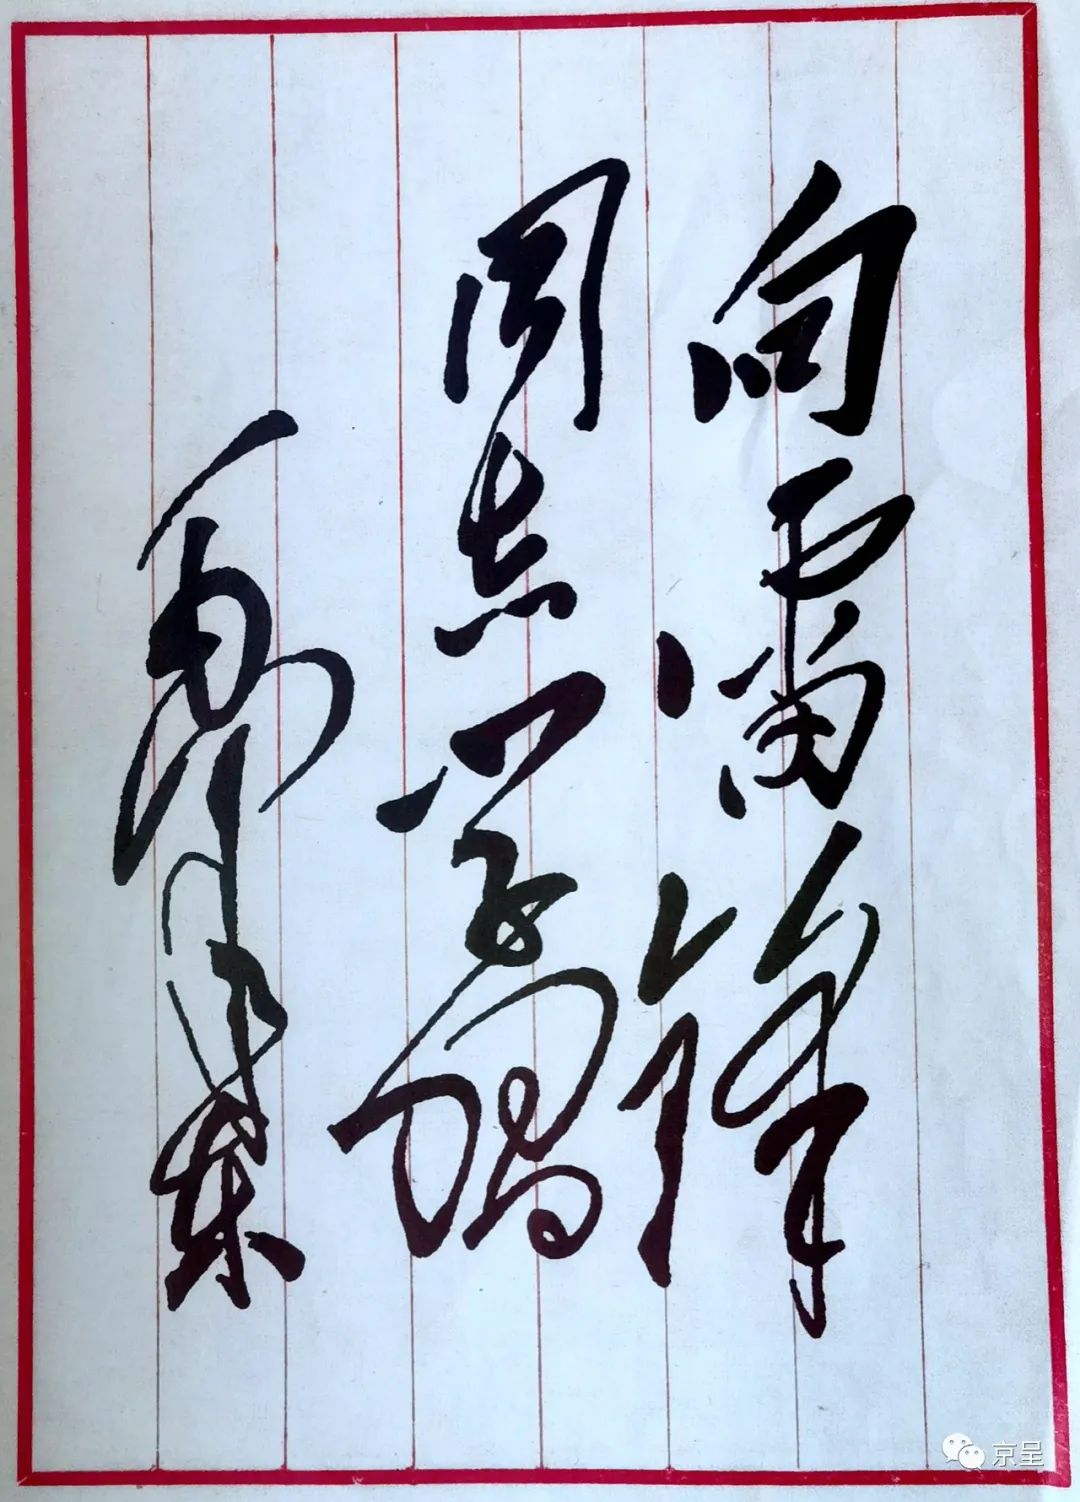 向雷锋
同志学习
毛泽东
京呈